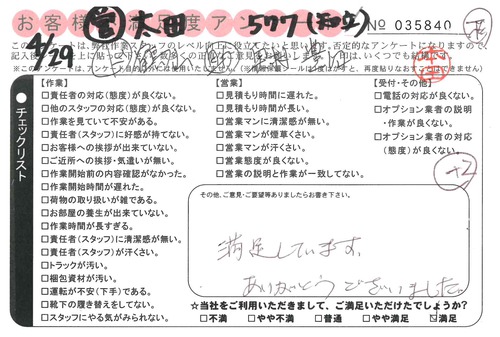 お客様満足度アン
営 太田 577 (和立) No 035840
4/29
このアンケートは、弊社作業スタッフのレベル向上に役立てたいと思います。否定的なアンケートになりますので、
チェックリスト
【作業】
□責任者の対応(態度)が良くない。
□他のスタッフの対応(態度)が良くない。
□作業を見ていて不安がある。
□責任者(スタッフ)に好感が持てない。
□お客様への挨拶が出来ていない。
□ご近所への挨拶・気遣いが無い。
□作業開始前の内容確認がなかった。
□作業開始時間が遅れた。
□荷物の取り扱いが雑である。
□お部屋の養生が出来ていない。
□作業時間が長すぎる。
□責任者(スタッフ)に清潔感が無い。
□責任者(スタッフ)が汗くさい。
□トラックが汚い。
□梱包資材が汚い。
□運転が不安(下手)である。
□靴下の履き替えをしてない。
□スタッフにやる気がみられない。
【営業】
□見積もり時間に遅れた。
□見積もり時間が長い。
□営業マンに清潔感が無い。
□営業マンが煙草くさい。
□営業マンが汗くさい。
□営業態度が良くない。
□営業の説明と作業が一致してない。
【受付・その他】
□電話の対応が良くない。
□オプション業者の説明
・作業が良くない。
□オプション業者の対応
(態度)が良くない。
+2
その他、ご意見・ご要望等ありましたらお書き下さい。
満足しています。
ありがとうございました。
☆当社をご利用いただきまして、ご満足いただけたでしょうか?
□不満 □やや不満 □普通 □やや満足 ☑満足